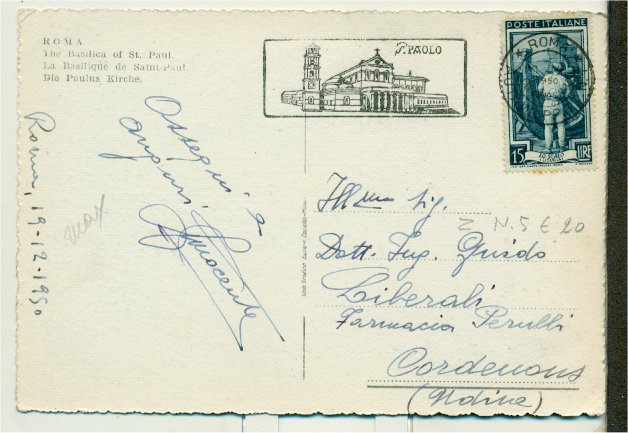 ROMA
The Basilica of St. Paul.
La Basilique de Saint-Paul.
Die Paulus Kirche.
S. PAOLO
POSTE ITALIANE
ROMA
15 LIRE
Roma, 19-12-1950
max
Ossequi e
auguri
Innocente
Ill.mo Sig.
N. 5 € 20
Dott. Ing. Guido
Liberali
Farmacia Perulli
Cordenons
(Udine)